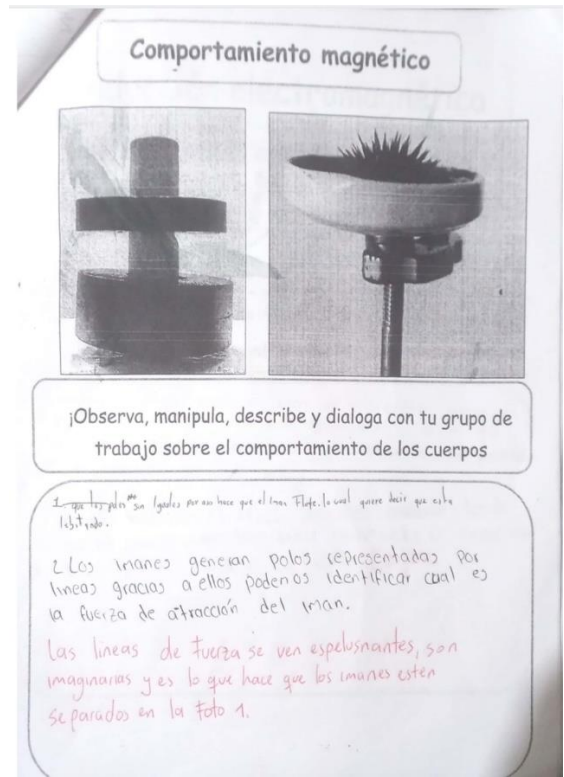 Comportamiento magnético
¡Observa, manipula, describe y dialoga con tu grupo de
trabajo sobre el comportamiento de los cuerpos
1. que los polos son Iguales por eso hace que el Iman Flote. lo cual quiere decir que esta
2 Los imanes generan polos representadas por
lineas gracias a ellos podemos identificar cual es
la fuerza de atracción del iman.
Las lineas de fuerza se ven espelusnantes, son
imaginarias y es lo que hace que los imanes esten
separados en la foto 1.